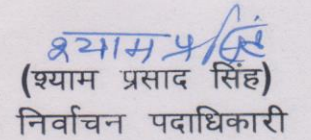 श्याम प्र सिंह
(श्याम प्रसाद सिंह)
निर्वाचन पदाधिकारी